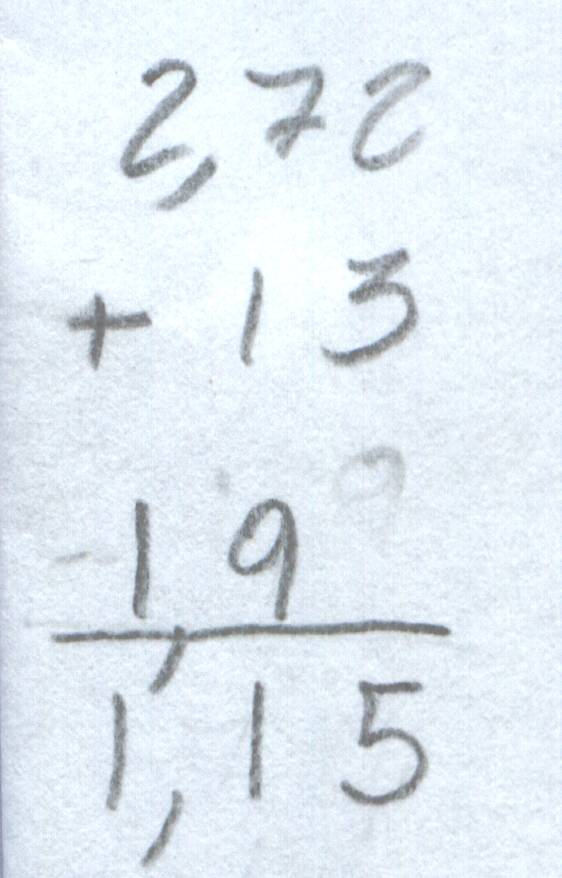 2,72
+ 13
- 1,9
1,15